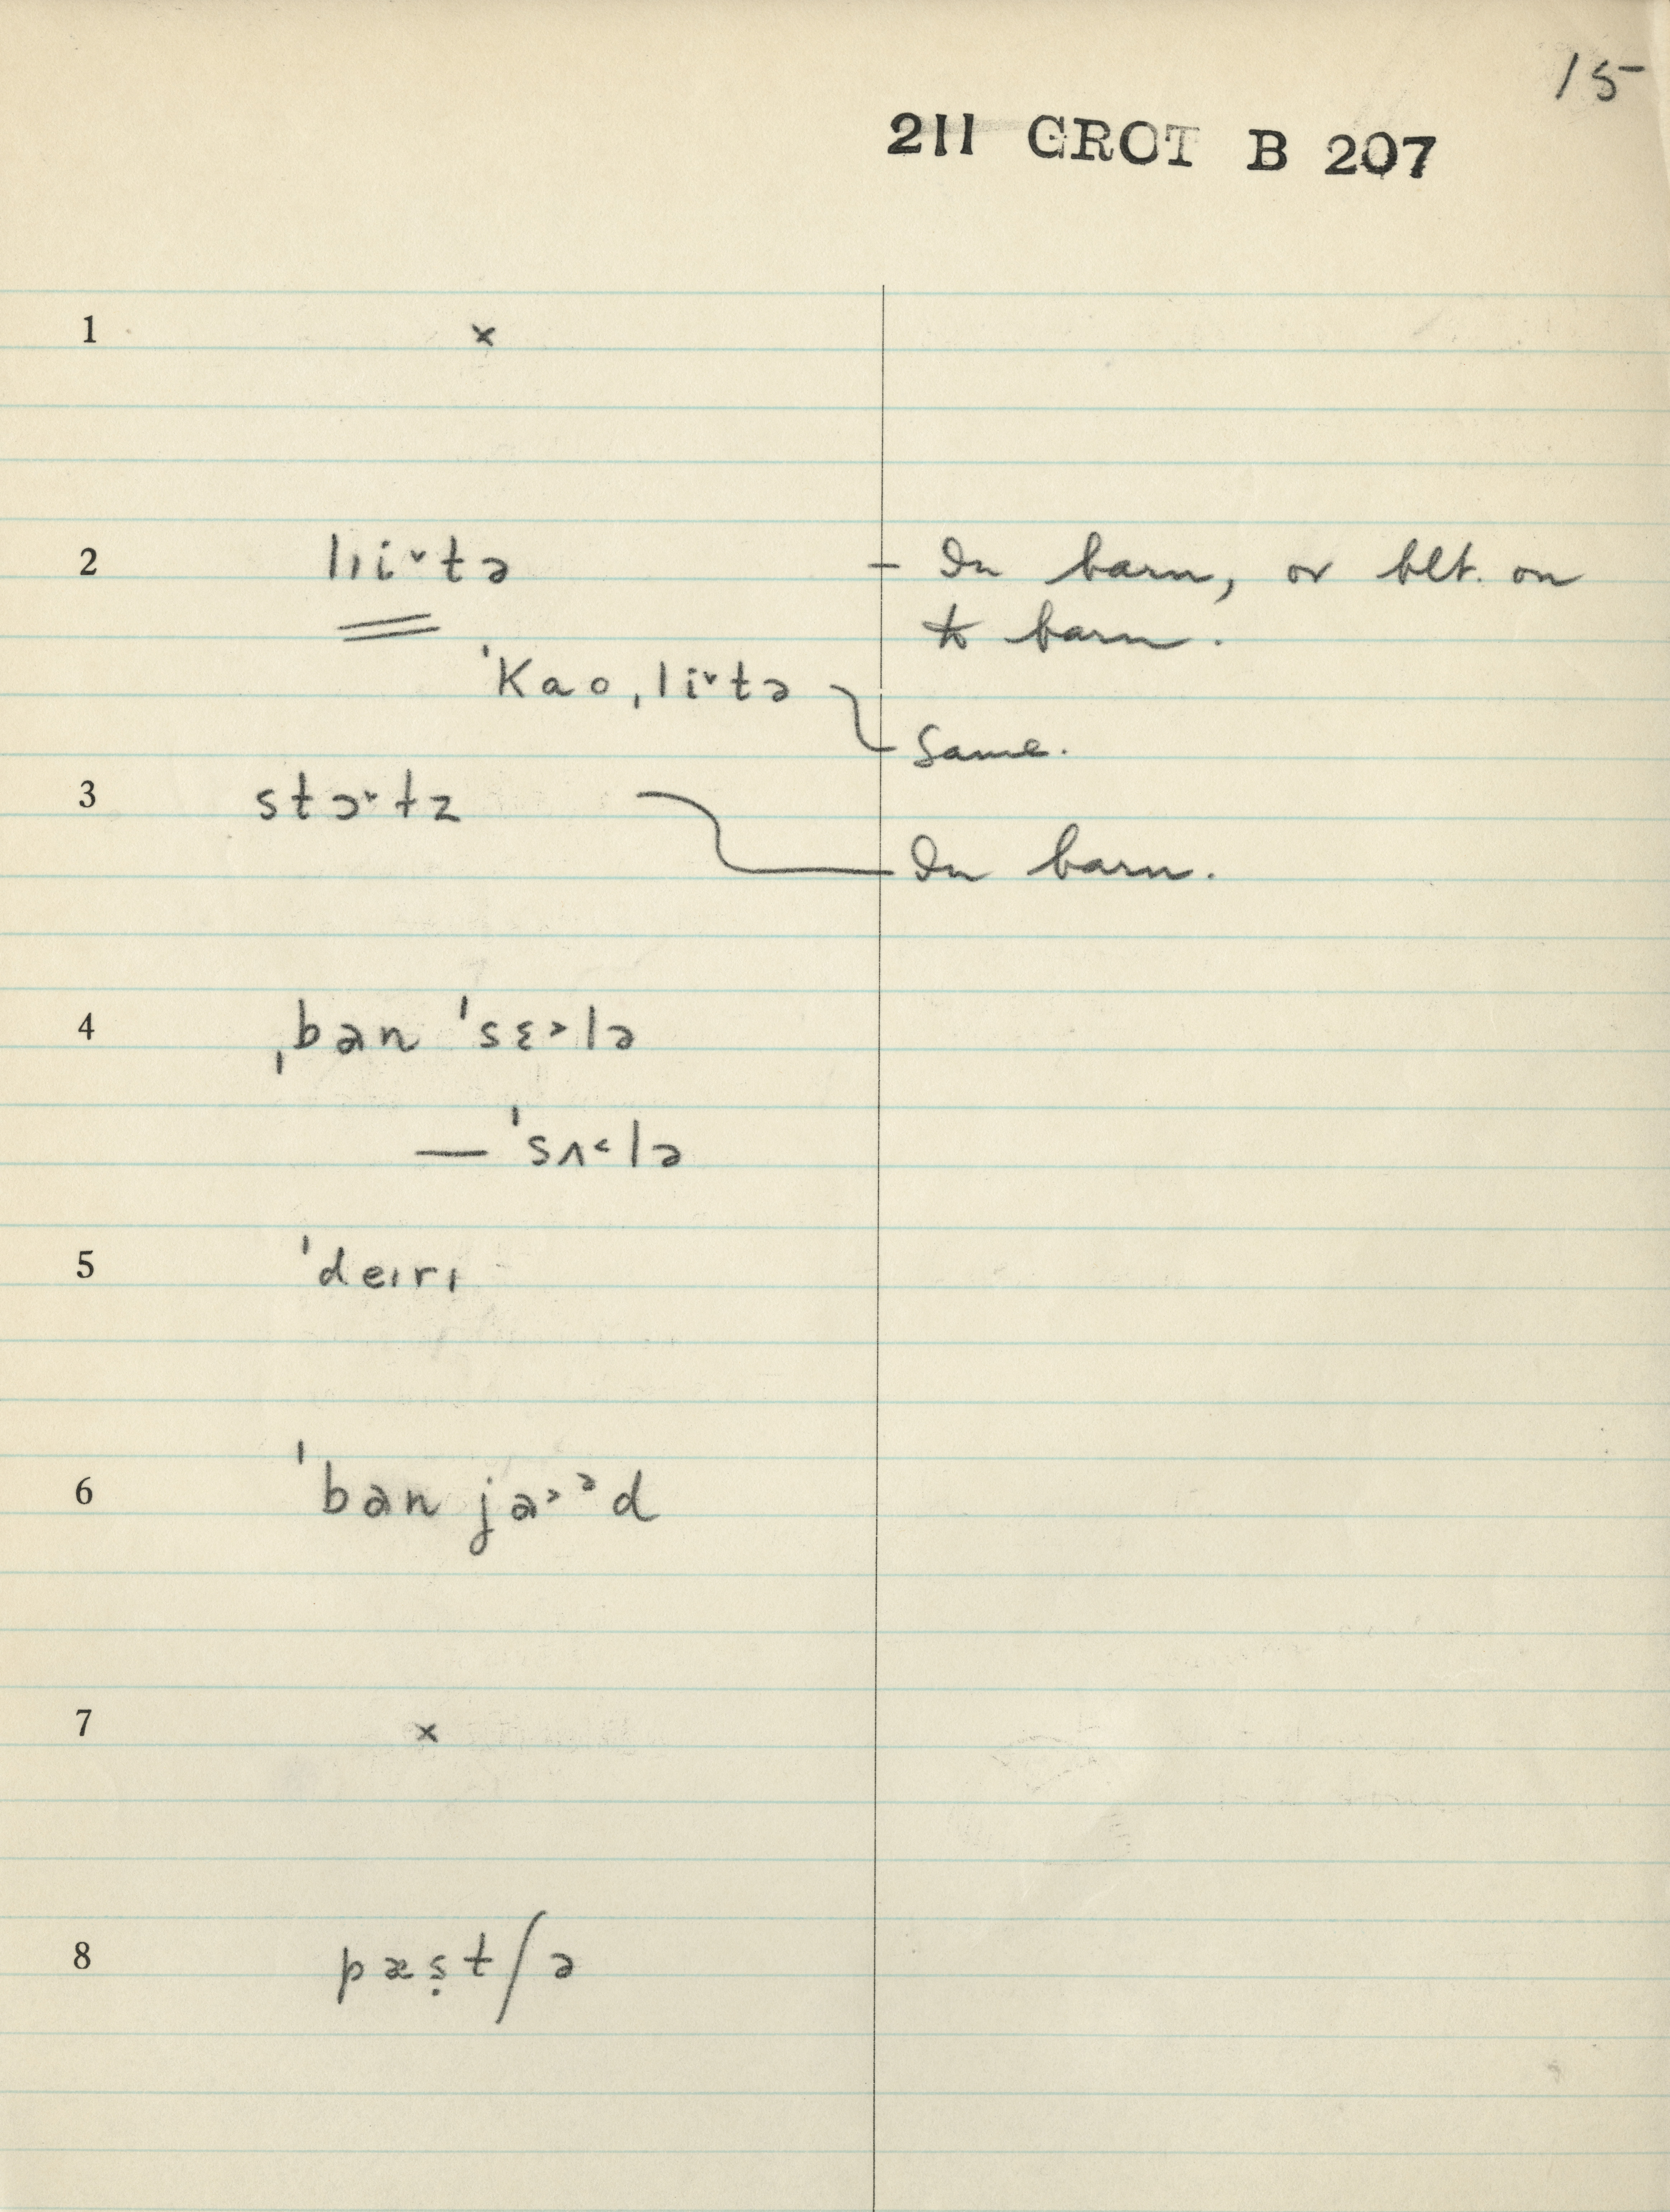 15
211 GROT B 207
1 ×
2 lıi˅tə – In barn, or blt. on
to barn.
ˈKao ˌli˅tə Same.
3 stɔ˅tz
In barn.
4 ˌban ˈsɛ˃lə
— ˈsʌ˂lə
5 ˈdeɪrɪ
6 ˈban ja˃ᵊd
7 ×
8 pæṣtʃə